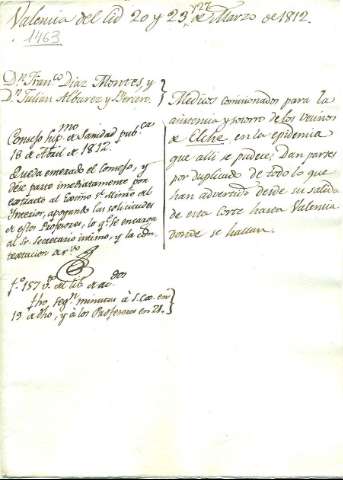 Valencia del Cid 20 y 23 y 27 de Marzo de 1812.
1463
Dn. Franco. Diaz Montes, y
Dn. Julian Alvarez y
Medicos comisionados para la
asistencia y socorro de los vecinos
de Elche, en la epidemia
que alli se padece: Dan partes
por duplicado de todo lo que
han advertido desde su salida
de esta Corte hasta Valencia
donde se hallan.
Consejo Supmo. de Sanidad pubca.
18 de Abril de 1812.
Queda enterado el Consejo, y
dese parte imediatamente por
extracto al Exmo. Sr. Mintro. del
Interior, apoyando las solicitudes
de estos Profesores, lo qe. se encarga
al Sr. Secretario intimo, y la
fo. 157 vto. del lib. de
fho, segn. minutas á S.E. en
19 de dho, y á los Profesores en 21.